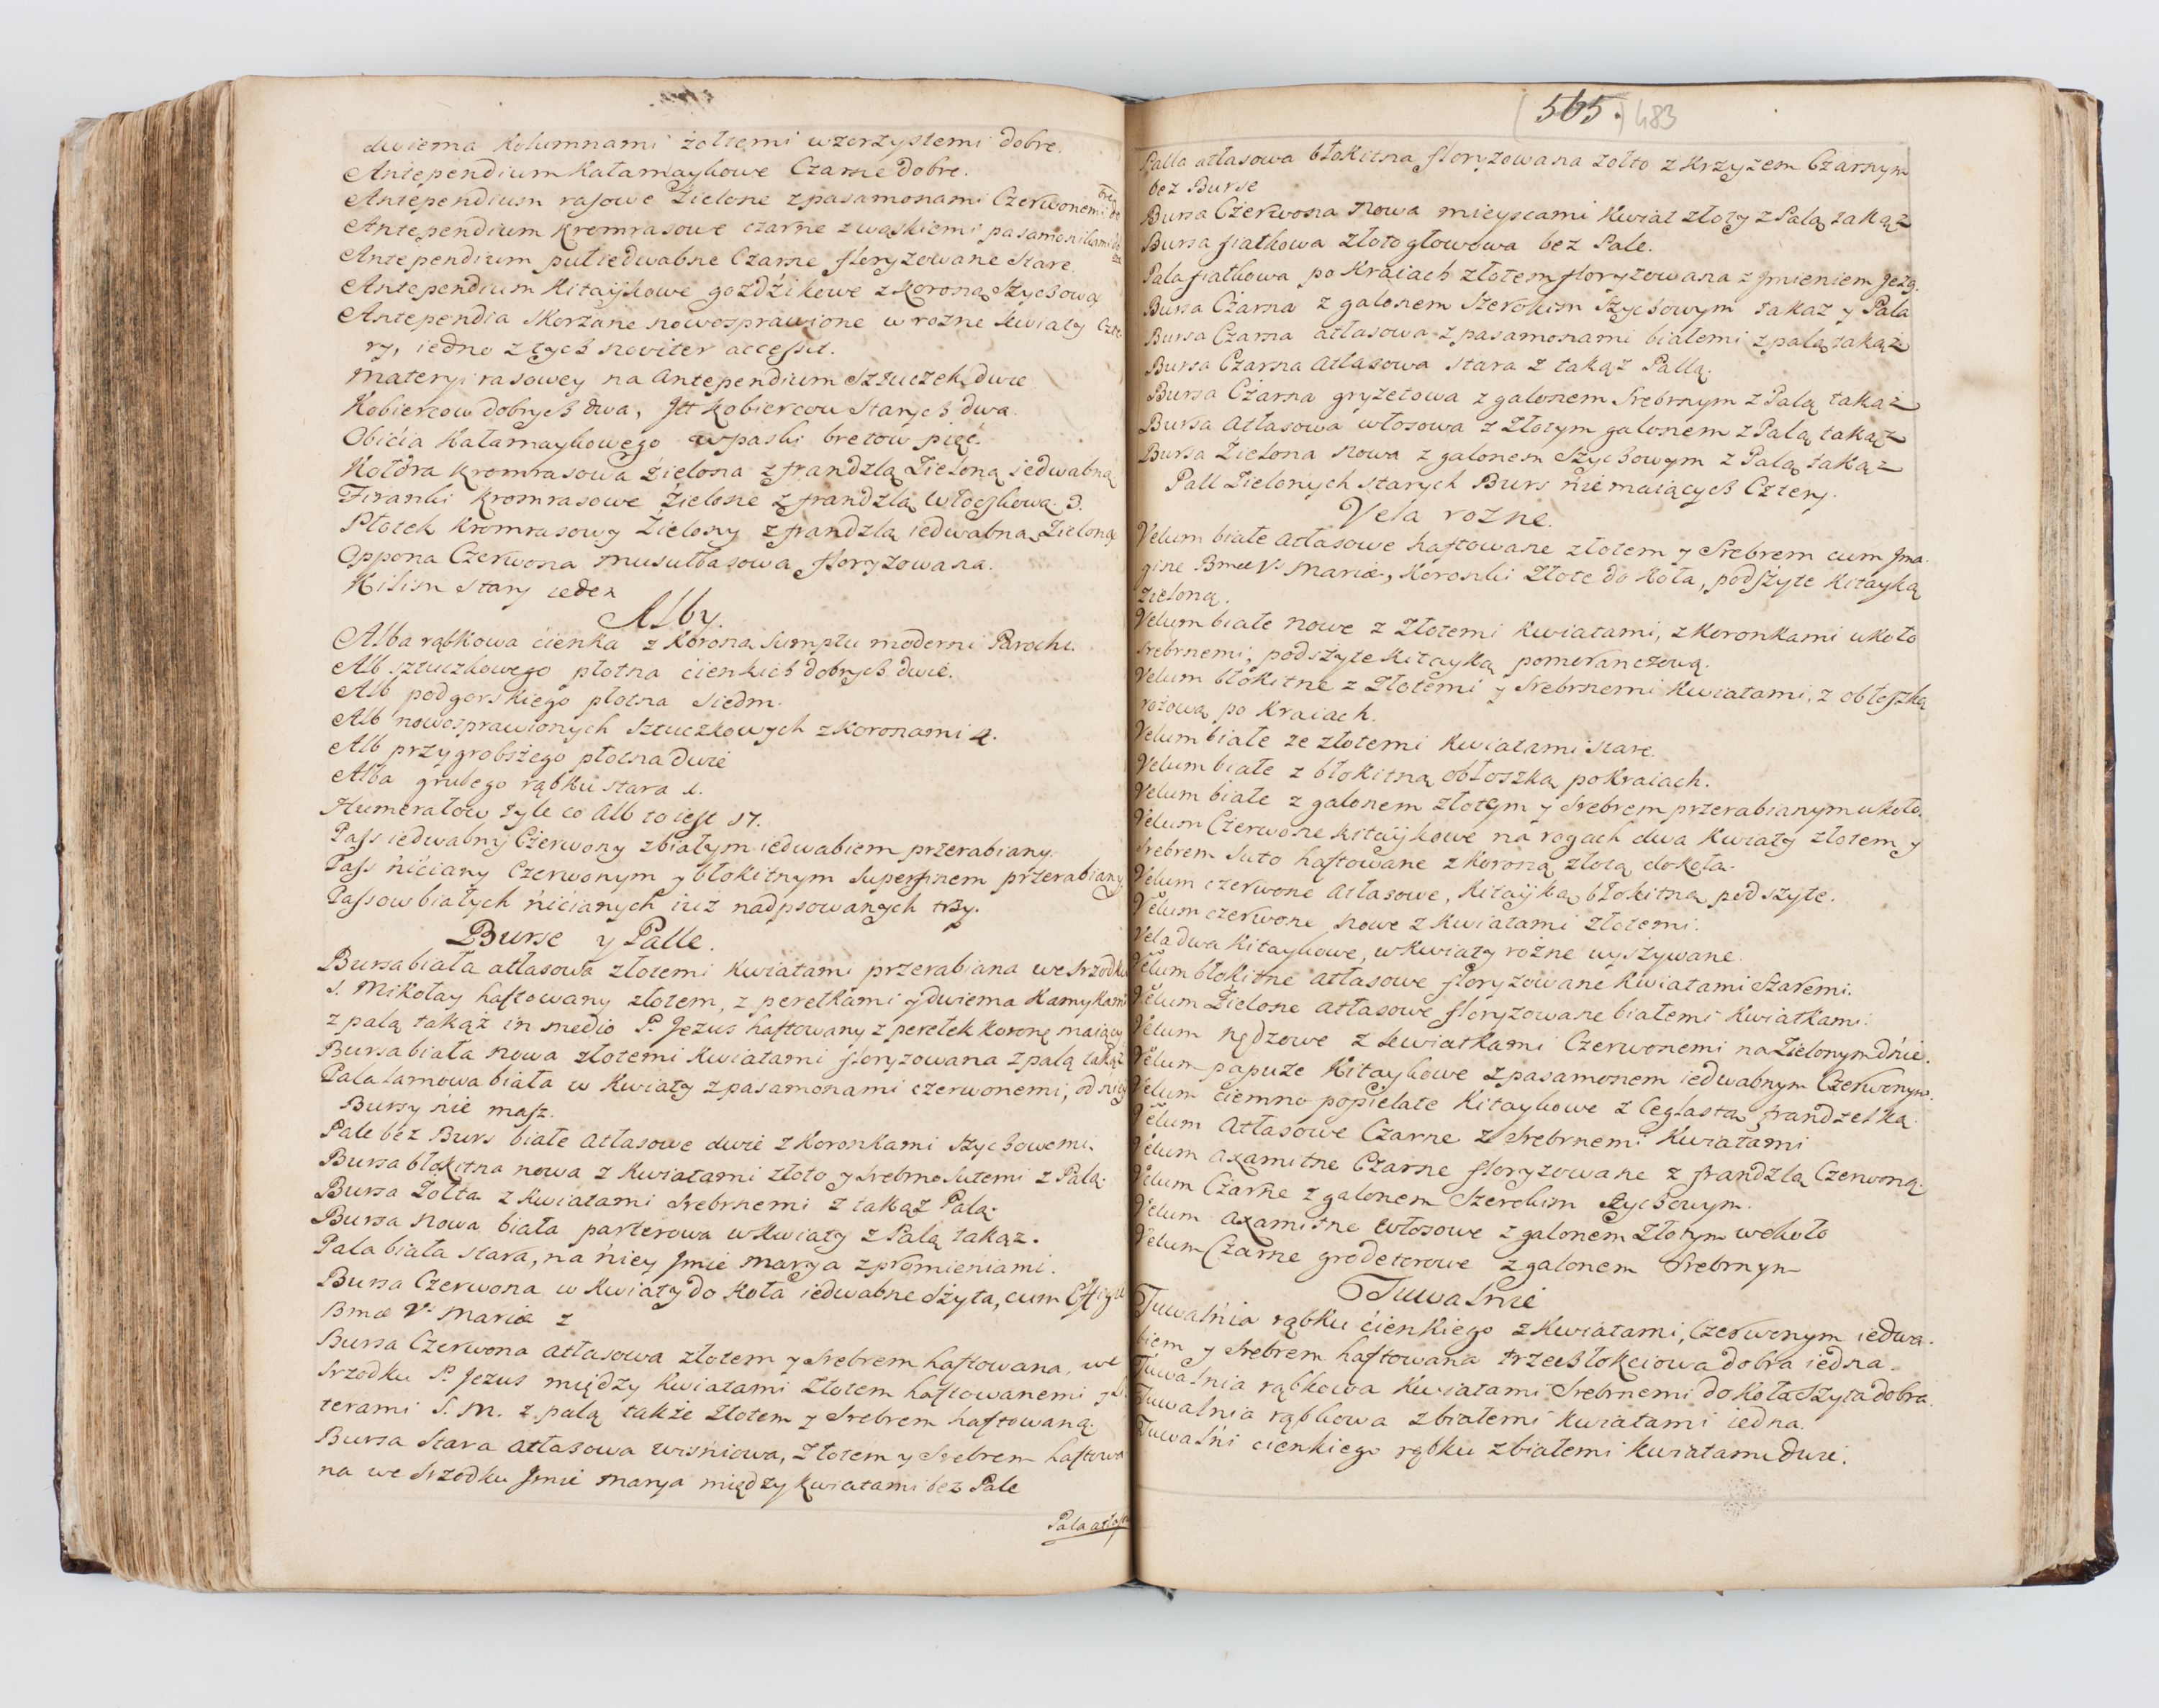 dwiema Kolumnami żołtemi wzorzystemi dobre.
Antependium Kałamaykowe Czarne dobre.
Antependium rasowe Zielone z pasamonami Czerwonemi
Antependium kromrasowe czarne z wąskiemi pasamonikami
Antependium pułiedwabne Czarne floryzowane stare.
Antependium Kitaykowe gozdźikowe z koroną Szychową
Antependia Skorzane noweosprawione w rożne kwiaty Czte-
ry, iedno z tych noviter accessit.
Materyi rasowey na Antependium Sztuczek dwie
Kobiercow dobrych dwa, Itt Kobiercow Starych dwa.
Obićia Kałamaykowego w paski bretow pięć.
Kołdra kromrasowa Zielona z frandzlą Zieloną iedwabną
Firanki kromrasowe Zielone z frandzlą Włoczkową 3.
Płotek kromrasowy Zielony z frandzlą iedwabną Zieloną
Oppona Czerwona musułbasowa floryzowana.
Kilim Stary ieden
Alby.
Alba rąbkowa ćienka z Koroną Sumptu moderni Parochi.
Alb sztuczkowego płotna ćienkich dobrych dwie.
Alb podgorskiego płotna Siedm.
Alb nowosprawionych Sztuczkowych z Koronami 4.
Alb przygrobszego płotna dwie
Alba grubego rąbku stara 1.
Humerałow tyle co Alb to iest 17.
Pass iedwabny Czerwony z białym iedwabiem przerabiany.
Pass nićiany Czerwonym y błokitnym Superfinem przerabiany
Passow białych nićianych iuż nadpsowanych trzy.
Burse y Palle.
Bursa biała atłasowa złotemi kwiatami przerabiana we srzodku
S. Mikołay haftowany złotem, z perełkami y dwiema Kamykami
z palą takąż in medio P. Jezus haftowany z perełek koronę maiący
Bursa biała nowa złotemi kwiatami floryzowana z palą takąż
Pala lamowa biała w kwiaty z pasamonami czerwonemi, od niey
Bursy nie masz.
Pale bez Burs białe atłasowe dwie z Koronkami Szychowemi.
Bursa błokitna nowa z kwiatami złoto y srebrno Sutemi z Palą.
Bursa Zołta z kwiatami Srebrnemi z takąż Palą.
Bursa nowa biała parterowa w kwiaty z Palą takąż.
Pala biała stara, na niey Jmie Marya z promieniami.
Bursa Czerwona w kwiaty do koła iedwabne Szyta, cum Effigie
Bmæ V. Mariæ z
Bursa Czerwona atłasowa złotem y Srebrem haftowana, we
Srzodku P. Jezus między kwiatami Złotem haftowanemi y
terami S. M. z palą także Złotem y Srebrem haftowaną.
Bursa Stara atłasowa wiśniowa, Złotem y Srebrem haftowa
na we Srzodku Jmie Marya między kwiatami bez Pale
Pala atłaso
565. 483
Palla atłasowa błokitna floryzowana żołto z Krzyżem Czarnym
bez Burse
Bursa Czerwona Nowa mieyscami kwiat złoty z Palą takąż
Bursa fiałkowa złotogłowowa bez Pale.
Pala fiałkowa po kraiach złotem floryzowana z Jmieniem Jezg.
Bursa Czarna z galonem Szerokim Szychowym takaż y Pala
Bursa Czarna atłasowa z pasamonami białemi z palą takąż
Bursa Czarna Atłasowa stara z takąż Pallą.
Bursa Czarna gryzetowa z galonem Srebrnym z Palą takąż
Bursa Atłasowa włosowa z Złotym galonem z Palą takąż
Bursa Zielona nowa z galonem Szychowym z Palą takąż
Pall Zielonych starych Burs niemaiących Cztery.
Vela rozne.
Velum białe Atłasowe haftowane złotem y Srebrem cum Jma-
gine Bmæ Vs Mariæ, Koronki Złote do koła, podszyte kitayką
zieloną.
Velum białe nowe z Złotemi kwiatami, z koronkami ukoło
Srebrnemi, podszyte kitayką pomeranczową.
Velum błokitne z Złotemi y Srebrnemi kwiatami, z obłoszką
rożową po kraiach.
Velum białe ze złotemi kwiatami stare.
Velum białe z błokitną obłoszką po kraiach.
Velum białe z galonem złotem y Srebrem przerabianym ukoło.
Velum Czerwone kitaykowe na rogach dwa kwiaty złotem y
srebrem suto haftowane z koroną złotą dokoła.
Velum czerwone Atłasowe, kitayką błokitną podszyte.
Velum czerwone nowe z kwiatami złotemi.
Vela dwa kitaykowe, w kwiaty rożne wyszywane.
Velum błokitne atłasowe floryzowane kwiatami Szaremi.
Velum Zielone Atłasowe floryzowane białemi kwiatkami.
Velum z kwiatkami Czerwonemi na Zielonym dnie.
Velum papuze Kitaykowe z pasamonem iedwabnym Czerwonym.
Velum ciemno popielate Kitaykowe z Ceglastą frandzelką.
Velum Atłasowe Czarne z Srebrnemi Kwiatami
Velum axamitne Czarne floryzowane z frandzlą Czerwoną.
Velum Czarne z galonem Szerokim Szychowym.
Velum axamitne włosowe z galonem Złotym wokoło
Velum Czarne grodetorowe z galonem Srebrnym
Tuwalnie
Tuwalnia rąbku ćienkiego z kwiatami, Czerwonym iedwa-
biem y Srebrem haftowana trzechłokciowa dobra iedna.
Tuwalnia rąbkowa kwiatami Srebrnemi do koła Szyta dobra.
Tuwalnia rąbkowa z białemi kwiatami iedna.
Tuwalni cienkiego rąbku z białemi kwiatami dwie.